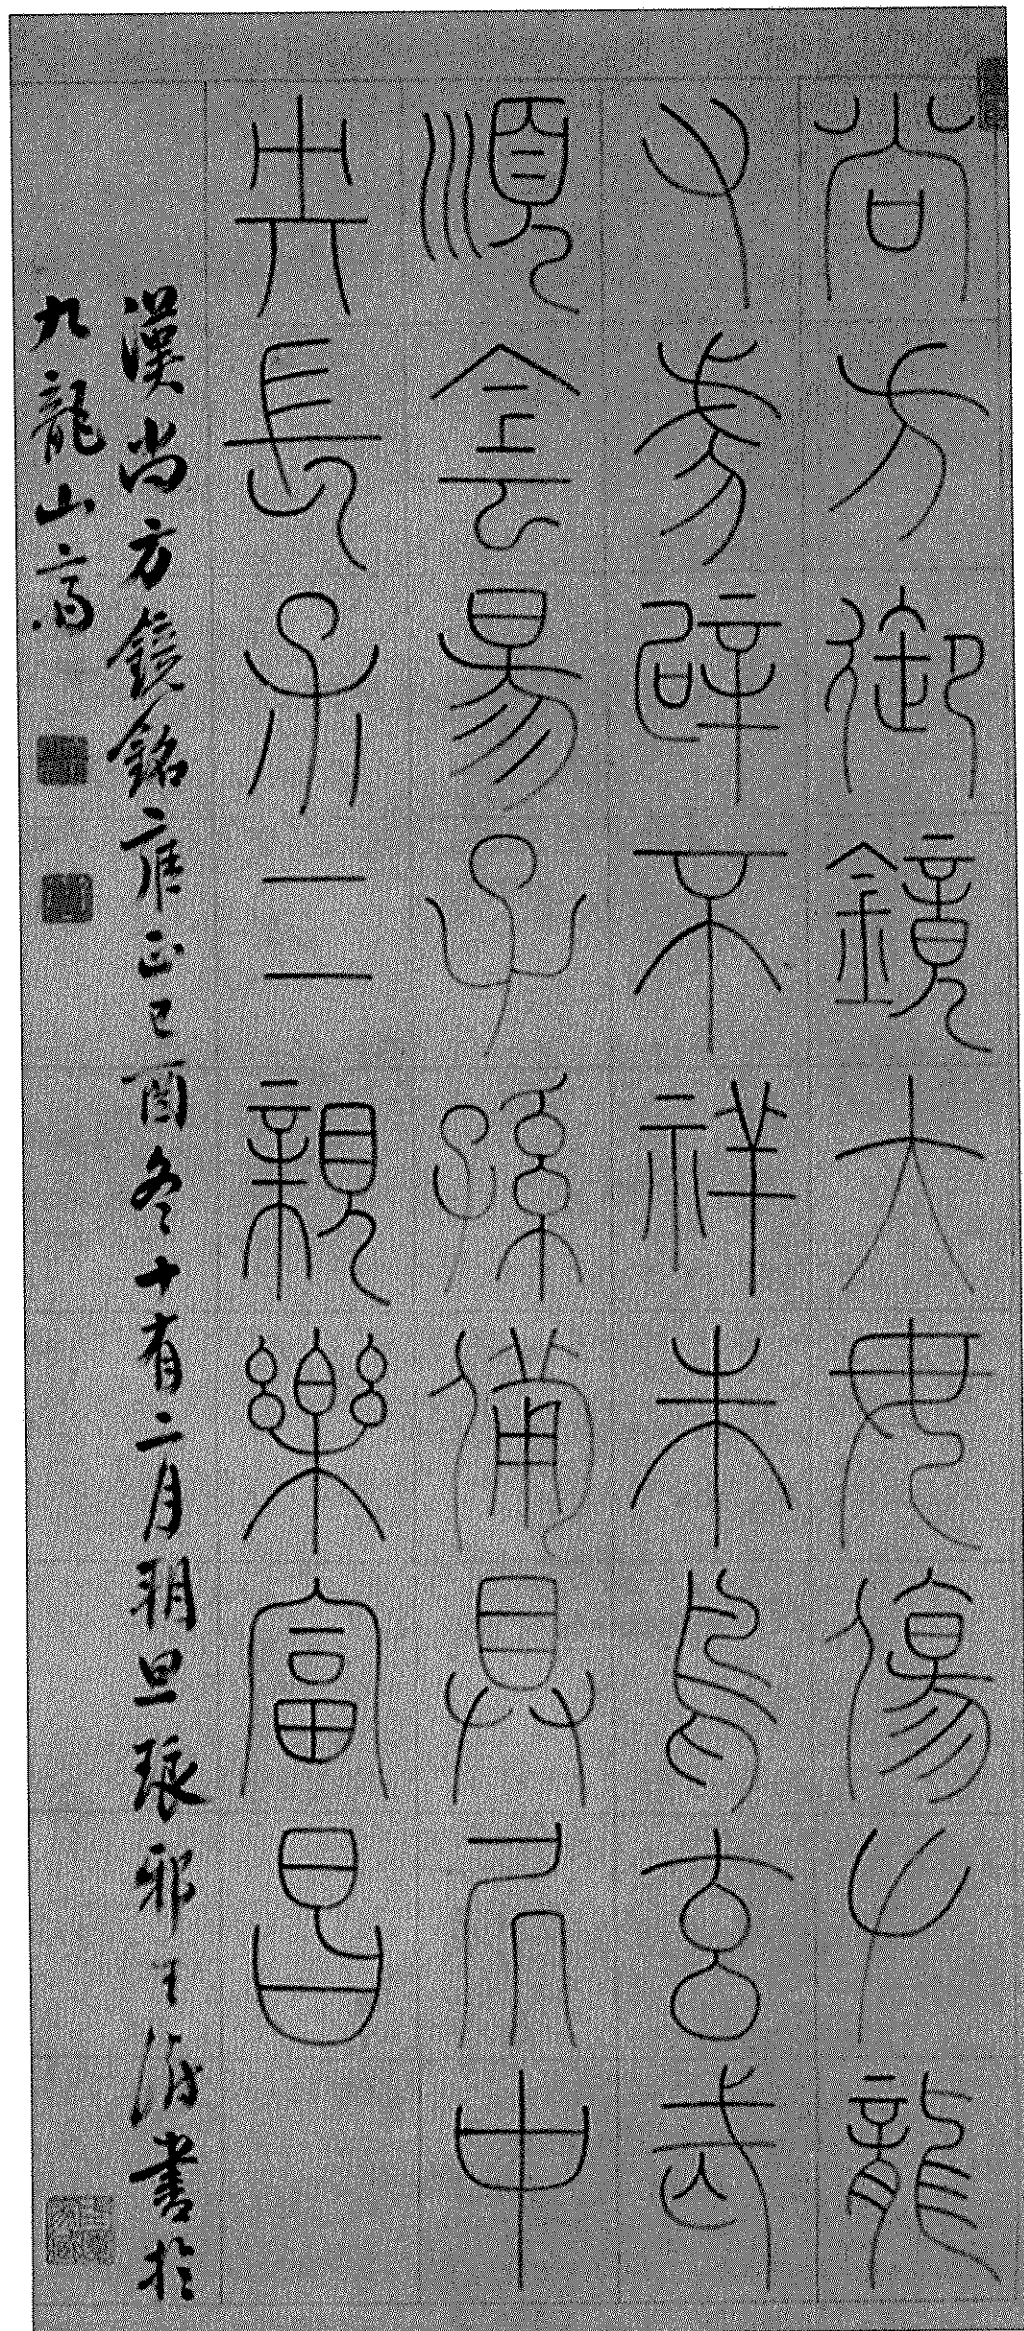 尚方御鏡大毋傷𠂇龍
又虎辟不祥朱鳥玄武
順侌昜子孫備具凥中
央長保二親樂富昌
漢尚方鏡銘雍正己酉冬十有二月朔旦琅邪王澍書於
九龍山齋